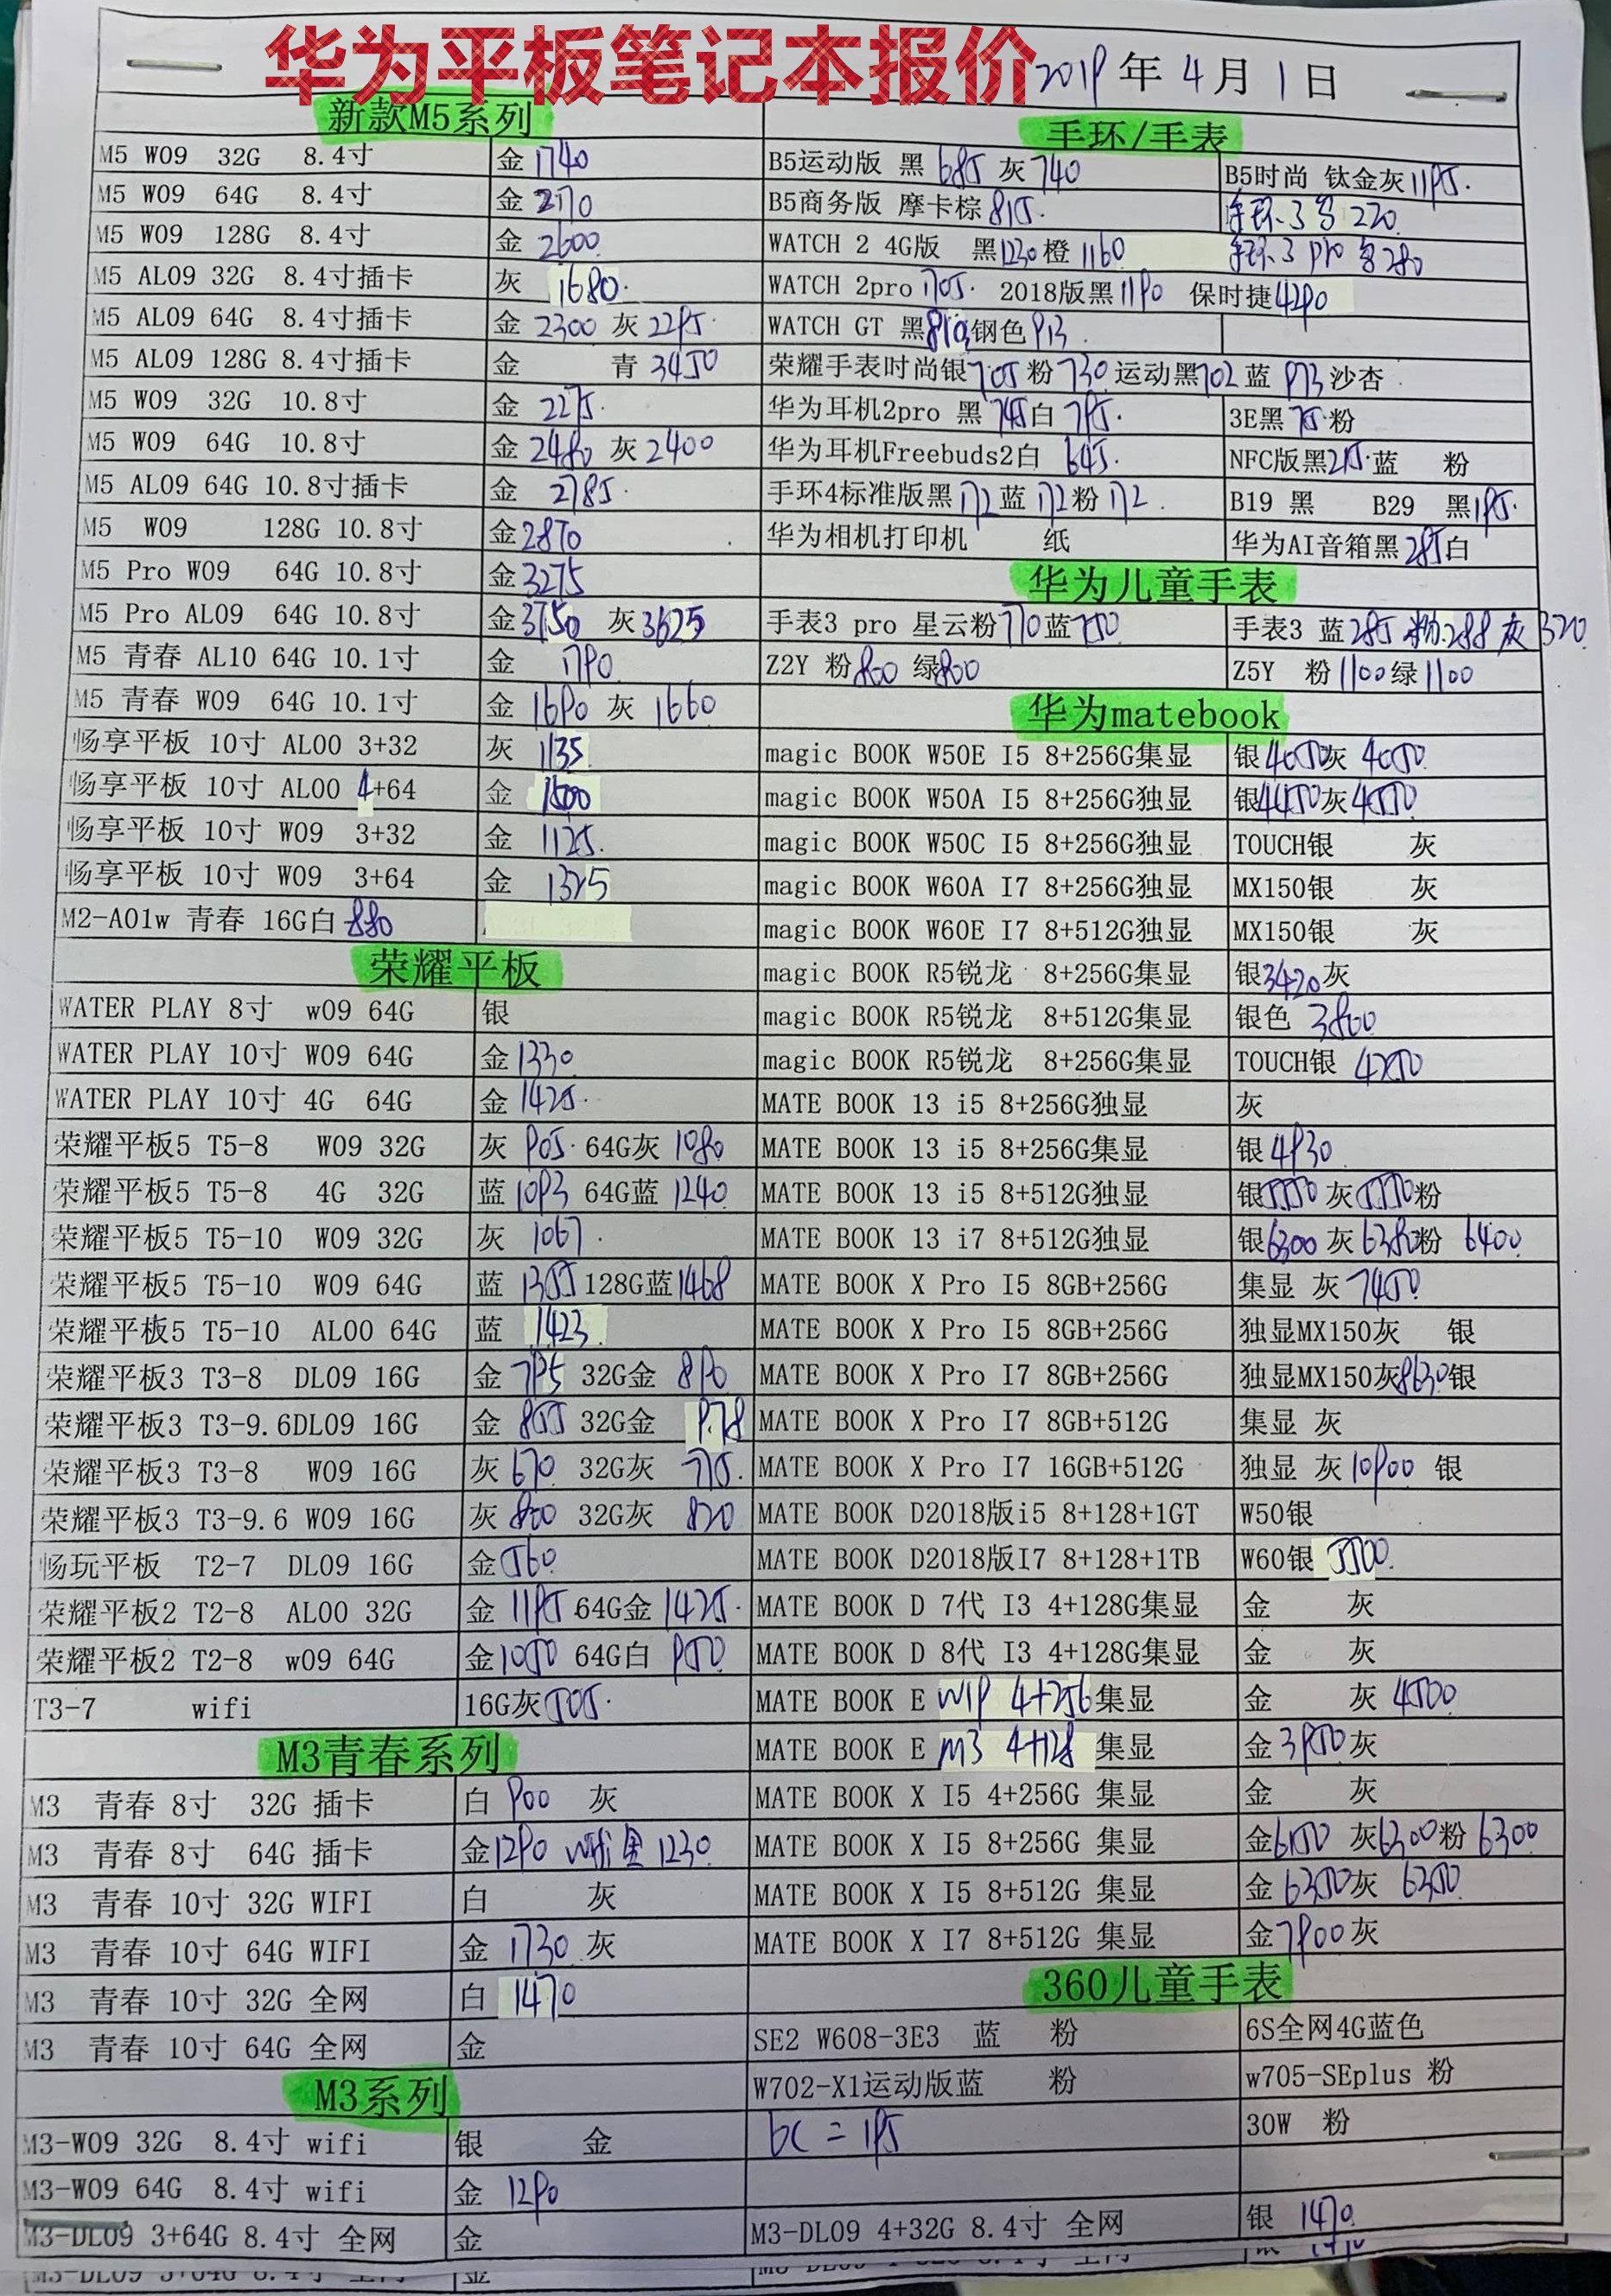 华为平板笔记本报价
2019年4月1日
新款M5系列
M5 W09 32G 8.4寸 金 1740
M5 W09 64G 8.4寸 金 2170
M5 W09 128G 8.4寸 金 2600
M5 AL09 32G 8.4寸插卡 灰 1680
M5 AL09 64G 8.4寸插卡 金 2300 灰 2295
M5 AL09 128G 8.4寸插卡 金 青 3450
M5 W09 32G 10.8寸 金 2275
M5 W09 64G 10.8寸 金 2480 灰 2400
M5 AL09 64G 10.8寸插卡 金 2785
M5 W09 128G 10.8寸 金 2870
M5 Pro W09 64G 10.8寸 金 3275
M5 Pro AL09 64G 10.8寸 金 3750 灰 3625
M5 青春 AL10 64G 10.1寸 金 1790
M5 青春 W09 64G 10.1寸 金 1690 灰 1660
畅享平板 10寸 AL00 3+32 灰 1135
畅享平板 10寸 AL00 4+64 金 1500
畅享平板 10寸 W09 3+32 金 1125
畅享平板 10寸 W09 3+64 金 1325
M2-A01w 青春 16G白 880
荣耀平板
WATER PLAY 8寸 w09 64G 银
WATER PLAY 10寸 W09 64G 金 1330
WATER PLAY 10寸 4G 64G 金 1425
荣耀平板5 T5-8 W09 32G 灰 905 64G灰 1080
荣耀平板5 T5-8 4G 32G 蓝 1093 64G蓝 1240
荣耀平板5 T5-10 W09 32G 灰 1067
荣耀平板5 T5-10 W09 64G 蓝 1355 128G蓝 1468
荣耀平板5 T5-10 AL00 64G 蓝 1423
荣耀平板3 T3-8 DL09 16G 金 795 32G金 890
荣耀平板3 T3-9.6DL09 16G 金 855 32G金 978
荣耀平板3 T3-8 W09 16G 灰 670 32G灰 715
荣耀平板3 T3-9.6 W09 16G 灰 800 32G灰 820
畅玩平板 T2-7 DL09 16G 金 560
荣耀平板2 T2-8 AL00 32G 金 1195 64G金 1425
荣耀平板2 T2-8 w09 64G 金 1050 64G白 950
T3-7 wifi 16G灰 505
M3青春系列
M3 青春 8寸 32G 插卡 白 900 灰
M3 青春 8寸 64G 插卡 金 1290 wifi 金 1230
M3 青春 10寸 32G WIFI 白 灰
M3 青春 10寸 64G WIFI 金 1730 灰
M3 青春 10寸 32G 全网 白 1470
M3 青春 10寸 64G 全网 金
M3系列
M3-W09 32G 8.4寸 wifi 银 金
M3-W09 64G 8.4寸 wifi 金 1290
M3-DL09 3+64G 8.4寸 全网 金
手环/手表
B5运动版 黑 685 灰 740 B5时尚 钛金灰 1195
B5商务版 摩卡棕 815 手环3 220
WATCH 2 4G版 黑 1230 橙 1160 手环3 pro 280
WATCH 2pro 1705 2018版黑 1190 保时捷 4290
WATCH GT 黑 810 钢色 913
荣耀手表时尚银 705 粉 730 运动黑 702 蓝 973 沙杏
华为耳机2pro 黑 745 白 795 3E黑 75 粉
华为耳机Freebuds2白 645 NFC版黑 215 蓝 粉
手环4标准版黑 172 蓝 172 粉 172 B19 黑 B29 黑 195
华为相机打印机 纸 华为AI音箱黑 285 白
华为儿童手表
手表3 pro 星云粉 770 蓝 750 手表3 蓝 285 粉 288 灰 320
Z2Y 粉 800 绿 800 Z5Y 粉 1100 绿 1100
华为matebook
magic BOOK W50E I5 8+256G集显 银 4050 灰 4050
magic BOOK W50A I5 8+256G独显 银 4450 灰 4550
magic BOOK W50C I5 8+256G独显 TOUCH银 灰
magic BOOK W60A I7 8+256G独显 MX150银 灰
magic BOOK W60E I7 8+512G独显 MX150银 灰
magic BOOK R5锐龙 8+256G集显 银 3420 灰
magic BOOK R5锐龙 8+512G集显 银色 3800
magic BOOK R5锐龙 8+256G集显 TOUCH银 4250
MATE BOOK 13 i5 8+256G独显 灰
MATE BOOK 13 i5 8+256G集显 银 4930
MATE BOOK 13 i5 8+512G独显 银 5550 灰 5550 粉
MATE BOOK 13 i7 8+512G独显 银 6300 灰 6380 粉 6400
MATE BOOK X Pro I5 8GB+256G 集显 灰 7450
MATE BOOK X Pro I5 8GB+256G 独显MX150灰 银
MATE BOOK X Pro I7 8GB+256G 独显MX150灰 8630 银
MATE BOOK X Pro I7 8GB+512G 集显 灰
MATE BOOK X Pro I7 16GB+512G 独显 灰 10900 银
MATE BOOK D2018版i5 8+128+1GT W50银
MATE BOOK D2018版I7 8+128+1TB W60银 5500
MATE BOOK D 7代 I3 4+128G集显 金 灰
MATE BOOK D 8代 I3 4+128G集显 金 灰
MATE BOOK E W19 4+256集显 金 灰 4500
MATE BOOK E m3 4+128 集显 金 3950 灰
MATE BOOK X I5 4+256G 集显 金 灰
MATE BOOK X I5 8+256G 集显 金 6150 灰 6300 粉 6300
MATE BOOK X I5 8+512G 集显 金 6350 灰 6350
MATE BOOK X I7 8+512G 集显 金 7900 灰
360儿童手表
SE2 W608-3E3 蓝 粉 6S全网4G蓝色
W702-X1运动版蓝 粉 w705-SEplus 粉
6C=195 30W 粉
M3-DL09 4+32G 8.4寸 全网 银 1470